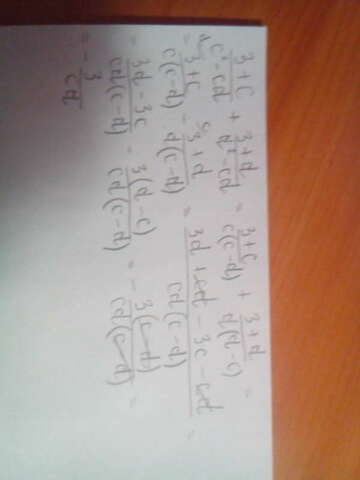 (3+c)/(c²-cd) + (3+d)/(d²-cd) = (3+c)/(c(c-d)) + (3+d)/(d(d-c)) =
= (3+c)/(c(c-d)) - (3+d)/(d(c-d)) = (3d+cd-3c-cd)/(cd(c-d)) =
= (3d-3c)/(cd(c-d)) = (3(d-c))/(cd(c-d)) = -(3(c-d))/(cd(c-d)) =
= -3/(cd)